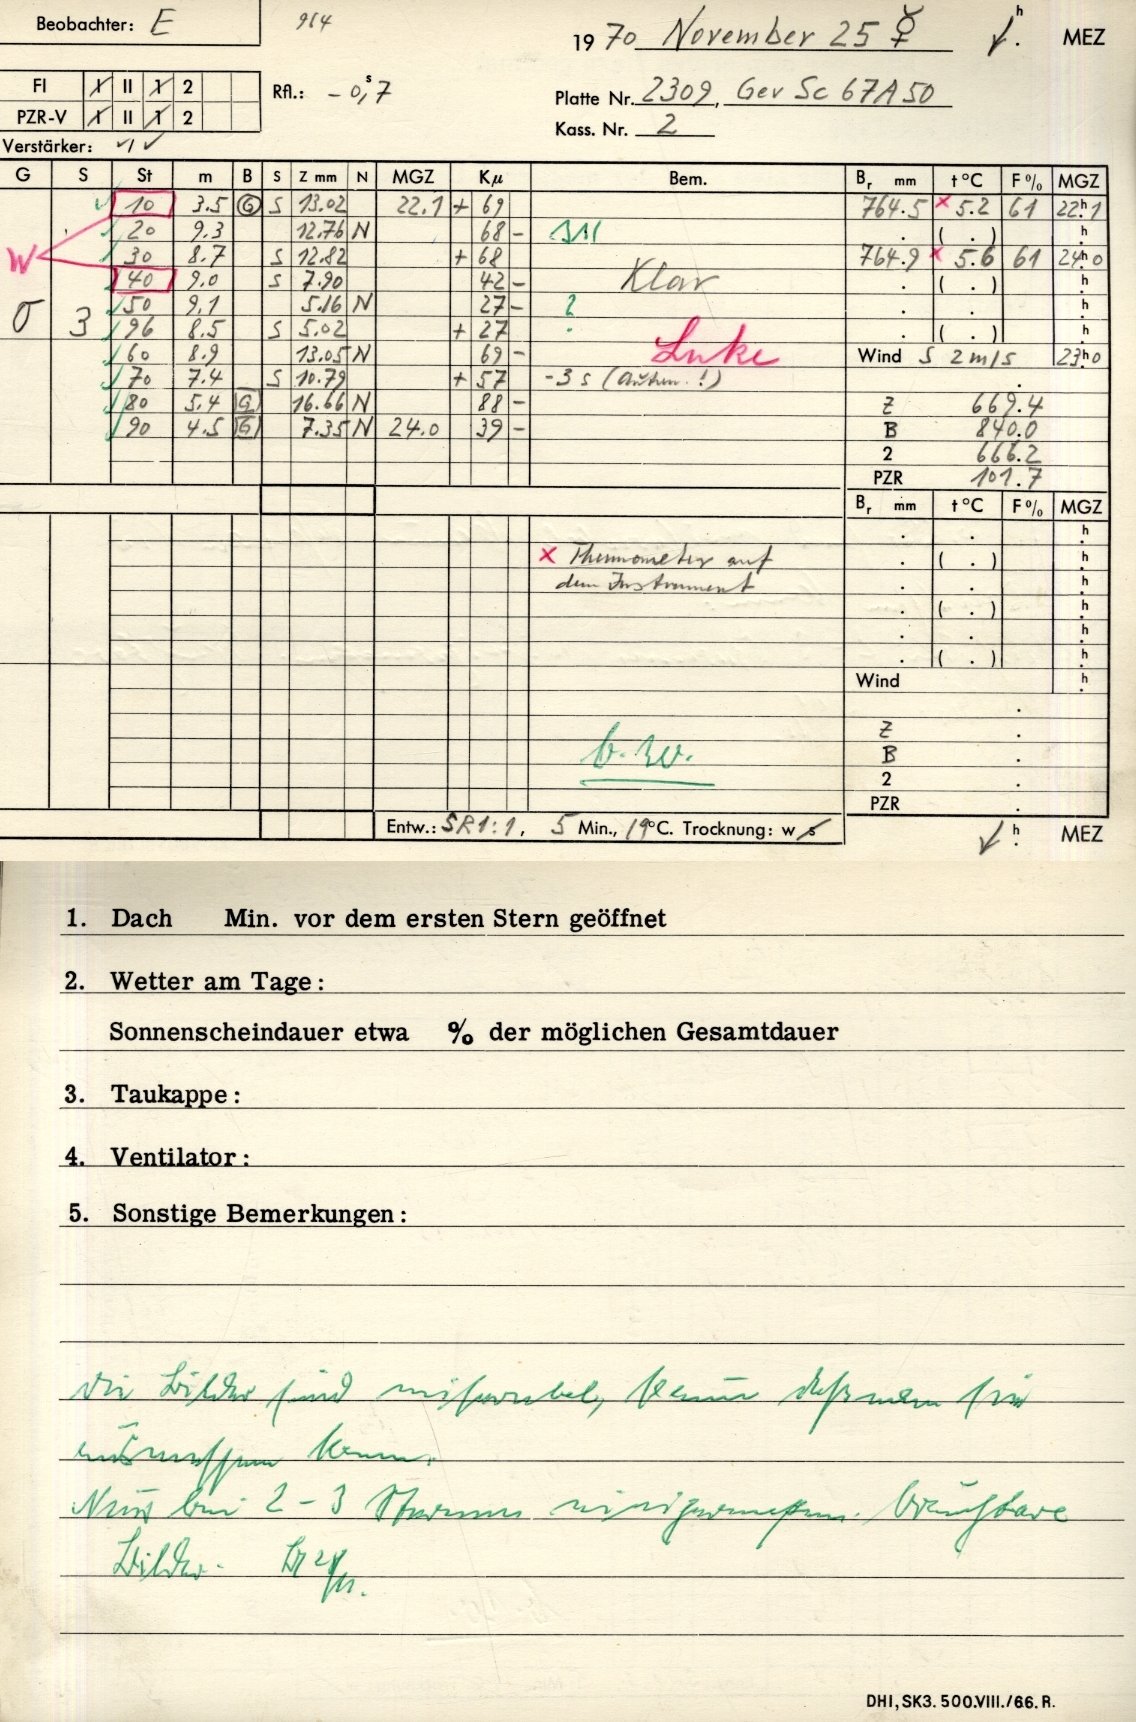 Beobachter: E
964
19 70 November 25 ☿ h. MEZ
FI I II 1 2
Rfl.: - 0,ˢ7
Platte Nr. 2309, Gev Sc 67A50
PZR-V I II 1 2
Kass. Nr. 2
Verstärker: ✓1✓
G S St m B S Z mm N MGZ Kμ Bem. Bᵣ mm t°C F% MGZ
10 3.5 G S 13.02 22.1 + 69 764.5 × 5.2 61 22ʰ1
20 9.3 12.76 N 68 - . ( . ) h
W 30 8.7 S 12.82 + 68 764.9 × 5.6 61 24ʰ0
40 9.0 S 7.90 42 - Klar . ( . ) h
50 9.1 5.16 N 27 - ? . . h
σ 3 96 8.5 S 5.02 + 27 . ( . ) h
60 8.9 13.05 N 69 - Wind S 2 m/s 23ʰ0
70 7.4 S 10.79 + 57 -3 s (!)
80 5.4 G 16.66 N 88 - Z 669.4
90 4.5 G 7.35 N 24.0 39 - B 840.0
2 666.2
PZR 101.7
Bᵣ mm t°C F% MGZ
. . h
× Thermometer auf . ( . ) h
dem Instrument . . h
. ( . ) h
. . h
. ( . ) h
Wind h
Z .
b.w. B .
2 .
PZR .
Entw.: SR1:1, 5 Min., 19°C. Trocknung: w s
h. MEZ
1. Dach Min. vor dem ersten Stern geöffnet
2. Wetter am Tage:
Sonnenscheindauer etwa % der möglichen Gesamtdauer
3. Taukappe:
4. Ventilator:
5. Sonstige Bemerkungen:
Die Bilder sind miserabel, kaum daß man sie
ausmessen kann.
Nur bei 2-3 Sternen einigermaßen brauchbare
Bilder.
DHI, SK3. 500.VIII./66. R.